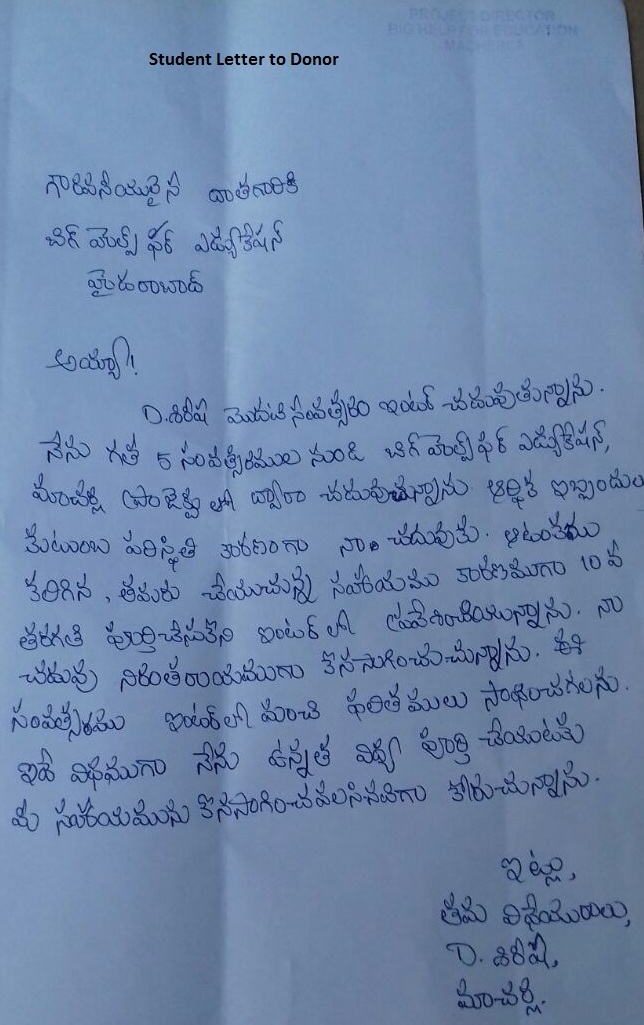 PROJECT DIRECTOR
BIG HELP FOR EDUCATION
MACHERLA
Student Letter to Donor
గౌరవనీయులైన దాతగారికి
బిగ్ హెల్ప్ ఫర్ ఎడ్యుకేషన్
హైదరాబాద్
అయ్యా!
D.శిరీష మొదటి సంవత్సరం ఇంటర్ చదువుతున్నాను.
నేను గత 5 సంవత్సరముల నుండి బిగ్ హెల్ప్ ఫర్ ఎడ్యుకేషన్,
మాచర్ల ప్రాజెక్టు లో ద్వారా చదువుచున్నాను. ఆర్థిక ఇబ్బందుల
కుటుంబ పరిస్థితి కారణంగా నా చదువుకు. ఆటంకము
కలిగిన, తమరు చేయుచున్న సహాయము కారణముగా 10 వ
తరగతి పూర్తిచేసుకొని ఇంటర్ లో ప్రవేశించియున్నాను. నా
చదువు నిరంతరాయముగా కొనసాగించుచున్నాను. ఈ
సంవత్సరము ఇంటర్ లో మంచి ఫలితములు సాధించగలను.
ఇదే విధముగా నేను ఉన్నత విద్య పూర్తి చేయుటకు
మీ సహాయమును కొనసాగించవలసినదిగా కోరుచున్నాను.
ఇట్లు,
తమ విధేయురాలు,
D. శిరీష,
మాచర్ల.